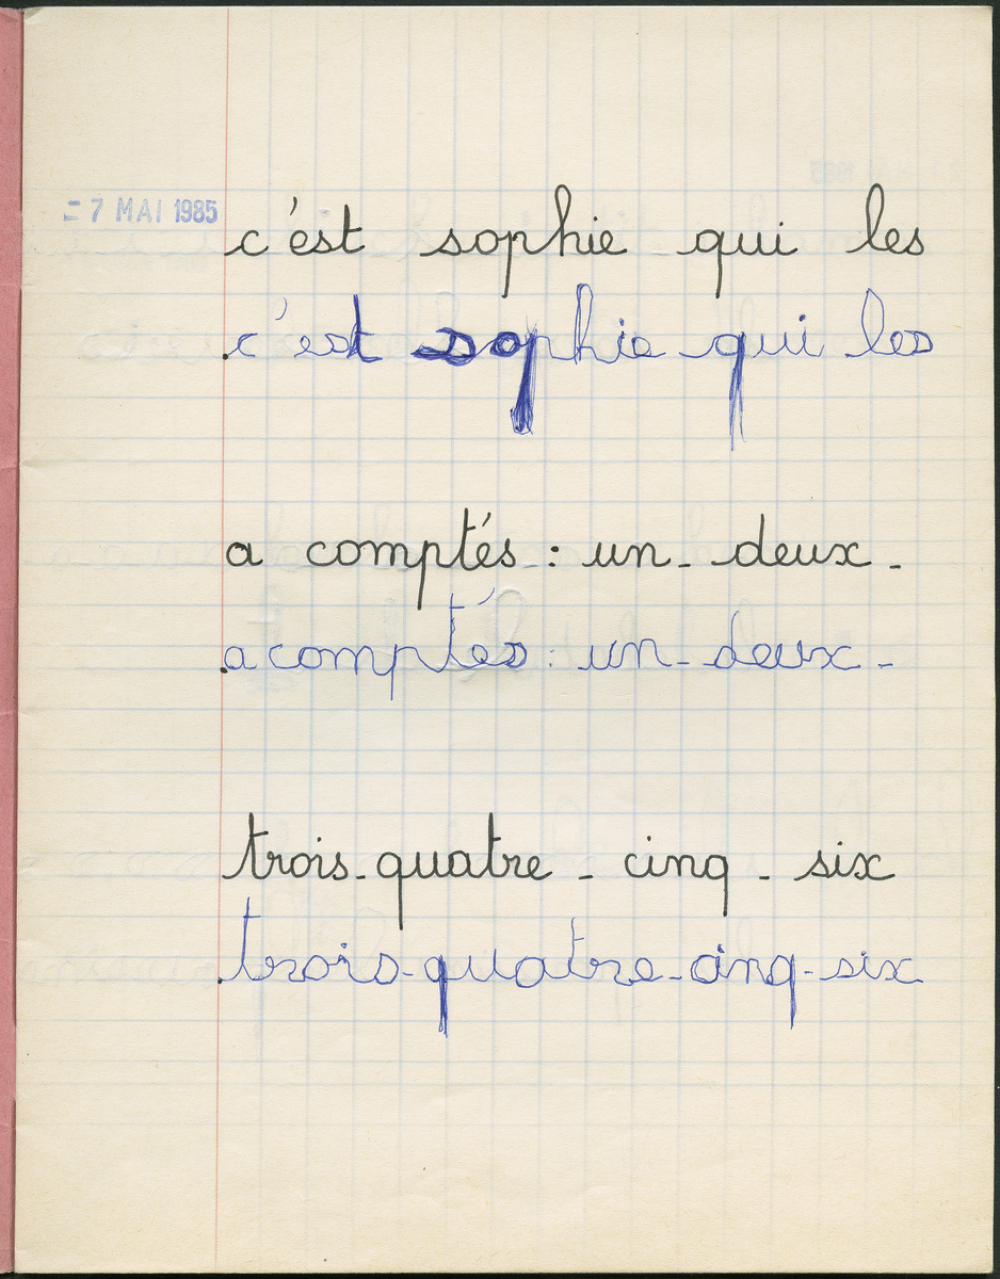 = 7 MAI 1985
c'est sophie qui les
c'est sophie qui les
a comptés : un - deux -
a comptés : un - deux -
trois - quatre - cinq - six
trois - quatre - cinq - six